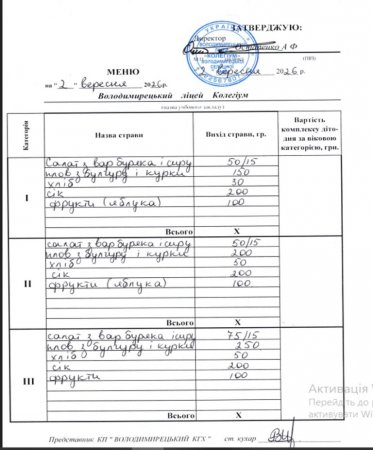 ЗАТВЕРДЖУЮ:
Директор
А Ф
(ПІП)
МЕНЮ
"2" вересня 2026 р.
на "2" вересня 2026 р.
Володимирецький ліцей Колегіум
(назва учбового закладу)
Категорія
Назва страви
Вихід страви, гр.
Вартість комплексу діто-дня за віковою категорією, грн.
I
Салат з вар буряка і сиру 50/15
плов з булгуру і курки 150
хліб 30
сік 200
фрукти (яблука) 100
Всього X
II
салат з вар буряка і сиру 50/15
плов з булгуру і курки 200
хліб 50
сік 200
фрукти (яблука) 100
Всього X
III
салат з вар буряка і сиру 75/15
плов з булгуру і курки 250
хліб 50
сік 200
фрукти 100
Всього X
Представник КП "ВОЛОДИМИРЕЦЬКИЙ КГХ" ст. кухар
Активація
Перейдіть до
активувати Wi